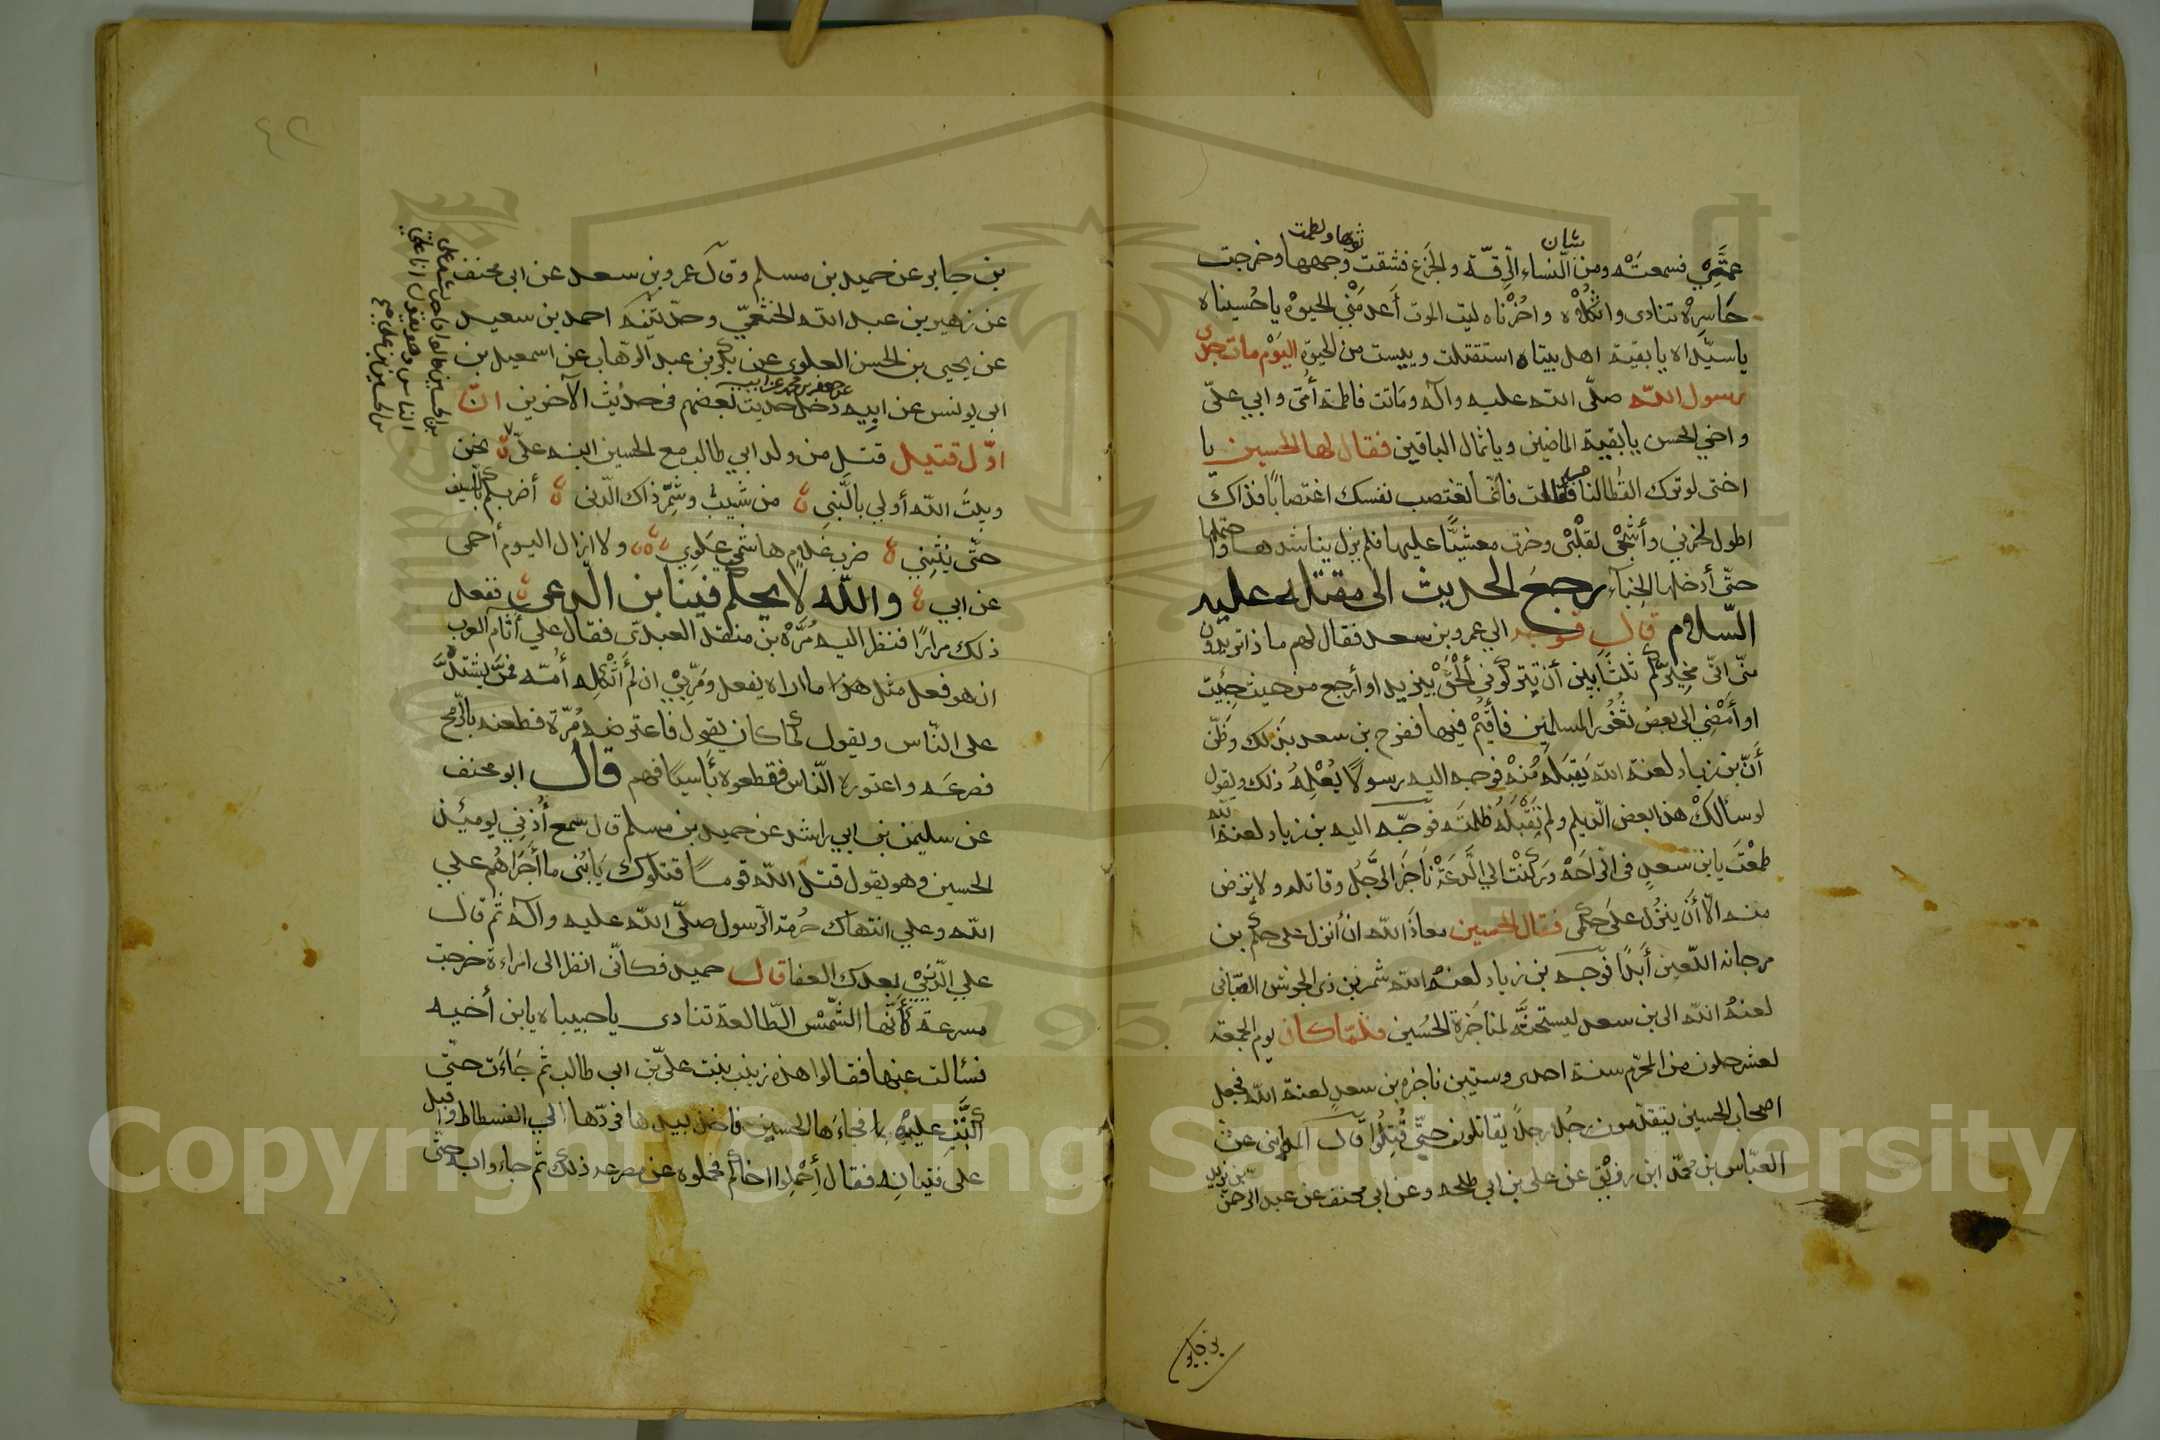 شان
ثوبها ولطمت
عمتي فسمعته ومن النساء الرقة والجزع فشقت وجهها وخرجت
حاسرة تنادى واثكلاه واحزناه ليت الموت أعدمني الحيوة يا حسيناه
يا سيداه يا بقية اهل بيتاه استقتلت ويئست من الحيوة اليوم مات جدى
رسول الله صلى الله عليه وآله وماتت فاطمة أمى وابي على
واخي الحسن يا بقية الماضين ويا ثمال الباقين فقال لها الحسين يا
اختى لو ترك القطا لنام فقالت فانما تغتصب نفسك اغتصابا فذاك
اطول لحزني وأشجى لقلبى وخرت مغشيا عليها فلم يزل يناشدها واحتملها
حتى أدخلها الخباء رجع الحديث الى مقتله عليه
السلام قال فوجه الي عمرو بن سعد فقال لهم ماذا تريدون
منى انى مخيركم ثلثا بين أن تتركوني ألحق بيزيد او أرجع من حيث جئت
او أمضي الى بعض ثغور المسلمين فأقيم فيها ففرح بن سعد بذلك وظن
أن بن زياد لعنة الله يقبله منه فوجه اليه رسولا يعلمه ذلك ويقول
لو سألك هذا بعض الديلم ولم تقبله ظلمته فوجه اليه بن زياد لعنه الله
طمعت يا بن سعد في الراحة وركنت الي الدعة ناجز الرجل وقاتله ولا ترض
منه الا أن ينزل على حكمى فقال الحسين معاذ الله ان أنزل على حكم بن
مرجانة اللعين أبدا فوجه بن زياد لعنه الله شمر بن ذى الجوشن الضبابى
لعنه الله الى بن سعد ليستحثه لمناجزة الحسين فلما كان يوم الجمعة
لعشر خلون من المحرم سنة احدى وستين ناجزه بن سعد لعنة الله فجعل
اصحاب الحسين يتقدمون رجل رجل يقاتلون حتى قتلوا قال المدايني عن
العباس بن محمد ابن رزين عن على بن ابي طلحه وعن ابي مخنف عن عبد الرحمن بن يزيد
بن جابر
٤٢
بن جابر عن حميد بن مسلم وقال عمرو بن سعد عن ابي مخنف
عن زهير بن عبد الله الخثعمي وحدثنيه احمد بن سعيد
عن يحيى بن الحسن العلوي عن بكر بن عبد الوهاب عن اسمعيل بن
عن جعفر بن محمد عن ابيه
ابى يونس عن ابيه دخل حديث بعضهم في حديث الآخرين ان
اول قتيل قتل من ولد ابي طالب مع الحسين ابنه على نحن
وبيت الله أولي بالنبي من شيث وشمر ذاك الدنى أضربكم بالسيف
حتى ينثني ضرب غلام هاشمي علوي ولا ازال اليوم أحمى
عن ابي والله لا يحكم فينا بن الدعي ففعل
ذلك مرارا فنظر اليه مرة بن منقذ العبدى فقال علي أثام العرب
ان هو فعل مثل هذا ما اراه يفعل ومر بي ان لم أثكله أمه فمر يشتد
على الناس ويقول كما كان يقول فاعترضه مرة فطعنه بالرمح
فصرعه واعتوره الناس فقطعوه بأسيافهم قال ابو مخنف
عن سليمن بن ابي راشد عن حميد بن مسلم قال سمع أذني يومئذ
الحسين وهو يقول قتل الله قوما قتلوك يا بنى ما أجراهم علي
الله وعلي انتهاك حرمة الرسول صلى الله عليه وآله ثم قال
علي الدنيي بعدك العفا قال حميد فكأنى انظر الى امراءة خرجت
مسرعة كأنها الشمس الطالعة تنادى يا حبيباه يا بن أخيه
فسألت عنها فقالوا هذه زينب بنت على بن ابى طالب ثم جاءت حتى
أكبت عليه فجاءها الحسين فاخذ بيدها فردها الي الفسطاط واقبل
على فتيانه فقال أحملوا اخاكم فحملوه عن مصرعه ذلك ثم جاءوا به حتى
Copyright © King Saud University
1957